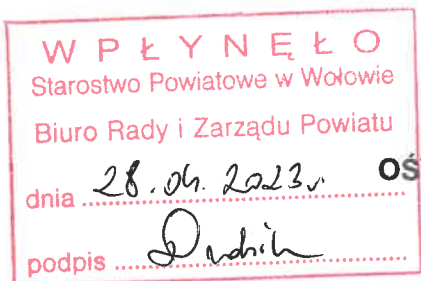 WPŁYNĘŁO
Starostwo Powiatowe w Wołowie
Biuro Rady i Zarządu Powiatu
dnia 28.04.2023r. OŚ
podpis